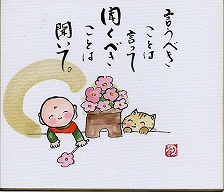 言うべき
ことは
言って
聞くべき
ことは
聞いて。